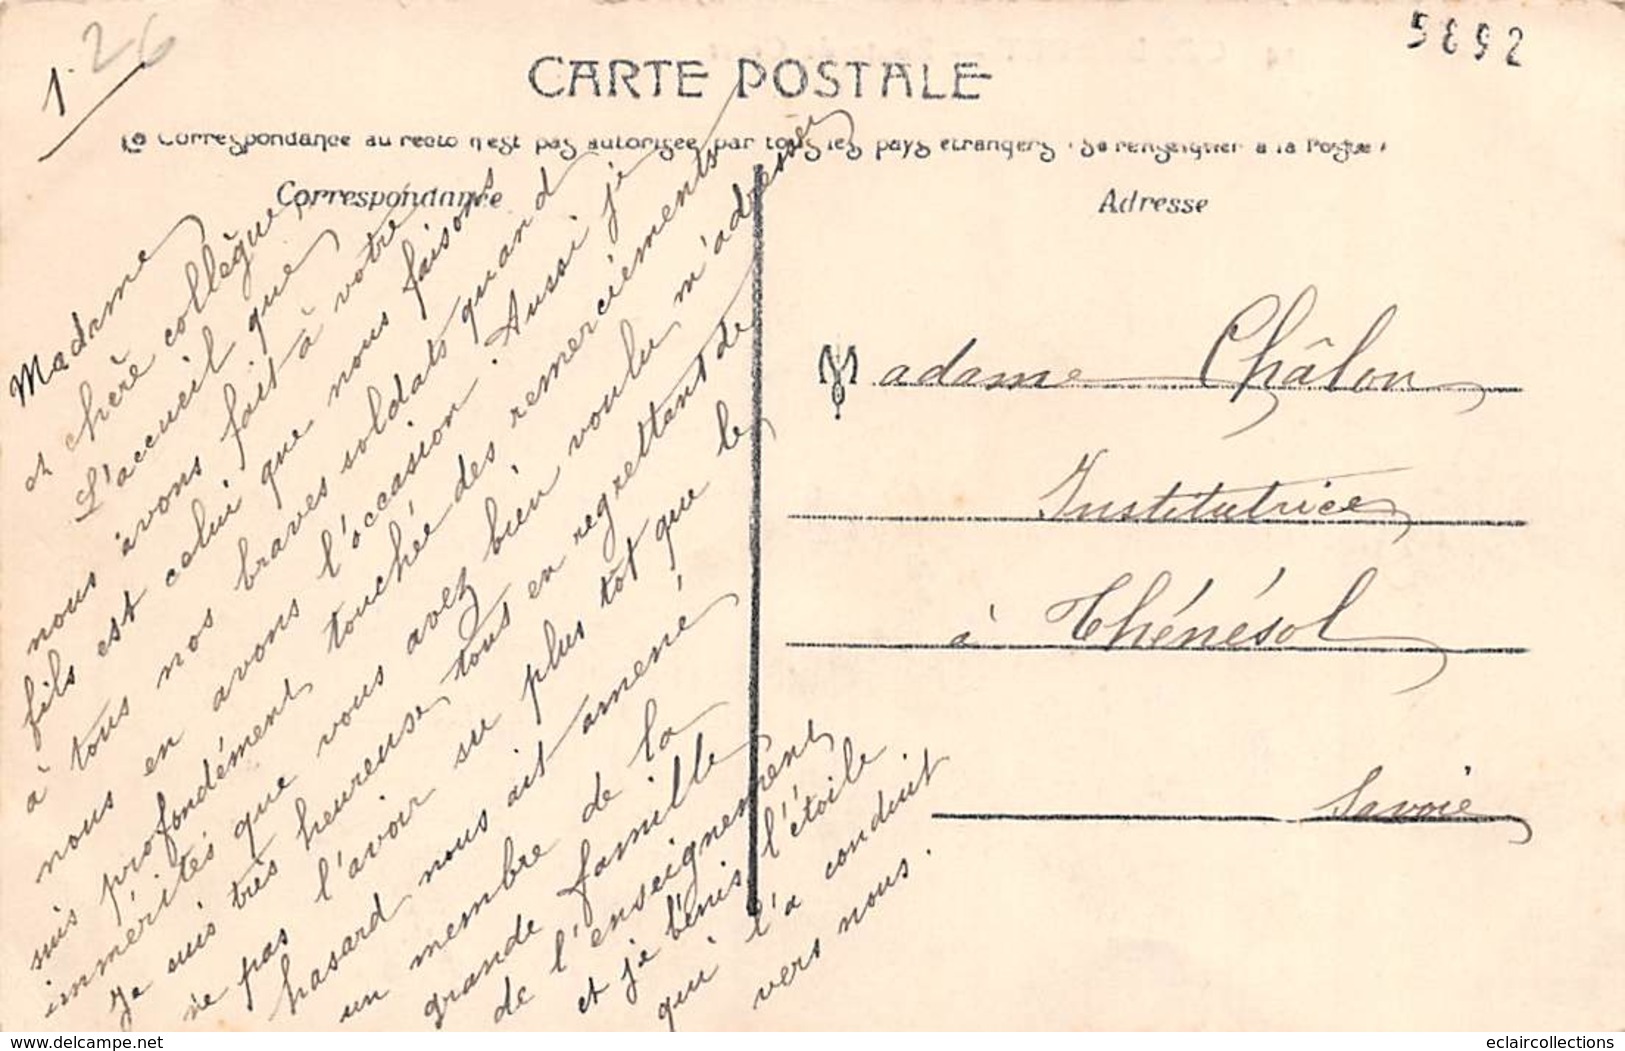 1.
26
5892
CARTE POSTALE
La Correspondance au recto n'est pas autorisée par tous les pays étrangers (Se renseigner à la Poste)
Correspondance
Adresse
Madame
et chère collègue,
L'accueil que
nous avons fait à votre
fils est celui que nous faisons
à tous nos braves soldats quand
nous en avons l'occasion. Aussi je
suis profondément touchée des remerciements
immérités que vous avez bien voulu m'adresser
Je suis très heureuse, tout en regrettant de
ne pas l'avoir su plus tôt que le
hasard nous ait amené
un membre de la
grande famille
de l'enseignement
et je bénis l'étoile
qui l'a conduit
vers nous.
Madame Châlon
Institutrice
à Thénésol
Savoie
www.delcampe.net
eclaircollections